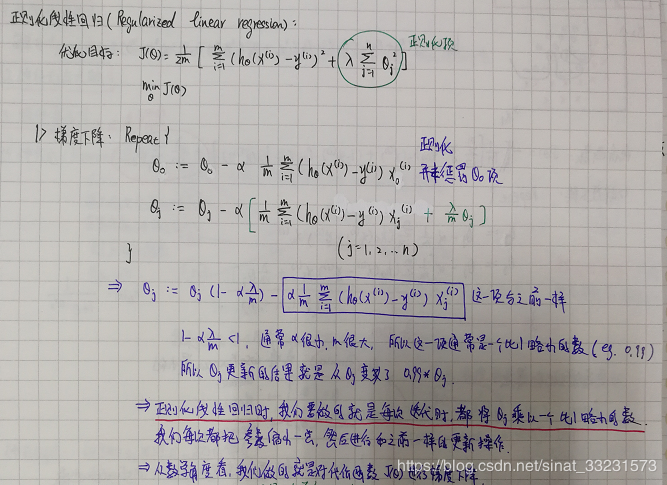 正则化线性回归 (Regularized linear regression):
代价目标: J(θ) = 1/2m [ Σ_{i=1}^{m} (hθ(x^{(i)}) - y^{(i)})² + λ Σ_{j=1}^{n} θj² ] 正则化项
min_θ J(θ)
1> 梯度下降: Repeat {
正则化
θ0 := θ0 - α 1/m Σ_{i=1}^{m} (hθ(x^{(i)}) - y^{(i)}) x0^{(i)} 并未惩罚θ0项
θj := θj - α [ 1/m Σ_{i=1}^{m} (hθ(x^{(i)}) - y^{(i)}) xj^{(i)} + λ/m θj ]
} (j=1, 2, ... n)
⇒ θj := θj (1 - α λ/m) - α 1/m Σ_{i=1}^{m} (hθ(x^{(i)}) - y^{(i)}) xj^{(i)} 这一项与之前一样
1 - α λ/m < 1, 通常α很小, m很大, 所以这一项通常是一个比1略小的数 (eg. 0.99)
所以θj更新的结果就是从θj变成了 0.99*θj.
⇒ 正则化线性回归时, 我们要做的就是每次迭代时, 都将θj乘以一个比1略小的数.
我们每次都把参数缩小一点, 然后进行和之前一样的更新操作.
⇒ 从数学角度看, 我们做的就是对代价函数J(θ)进行梯度下降
https://blog.csdn.net/sinat_33231573